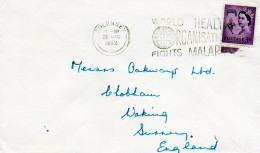 GUERNSEY
1962
WORLD HEALTH
ORGANISATION
FIGHTS MALARIA
Messrs Oakways Ltd.
Chobham
Woking
Surrey.
England